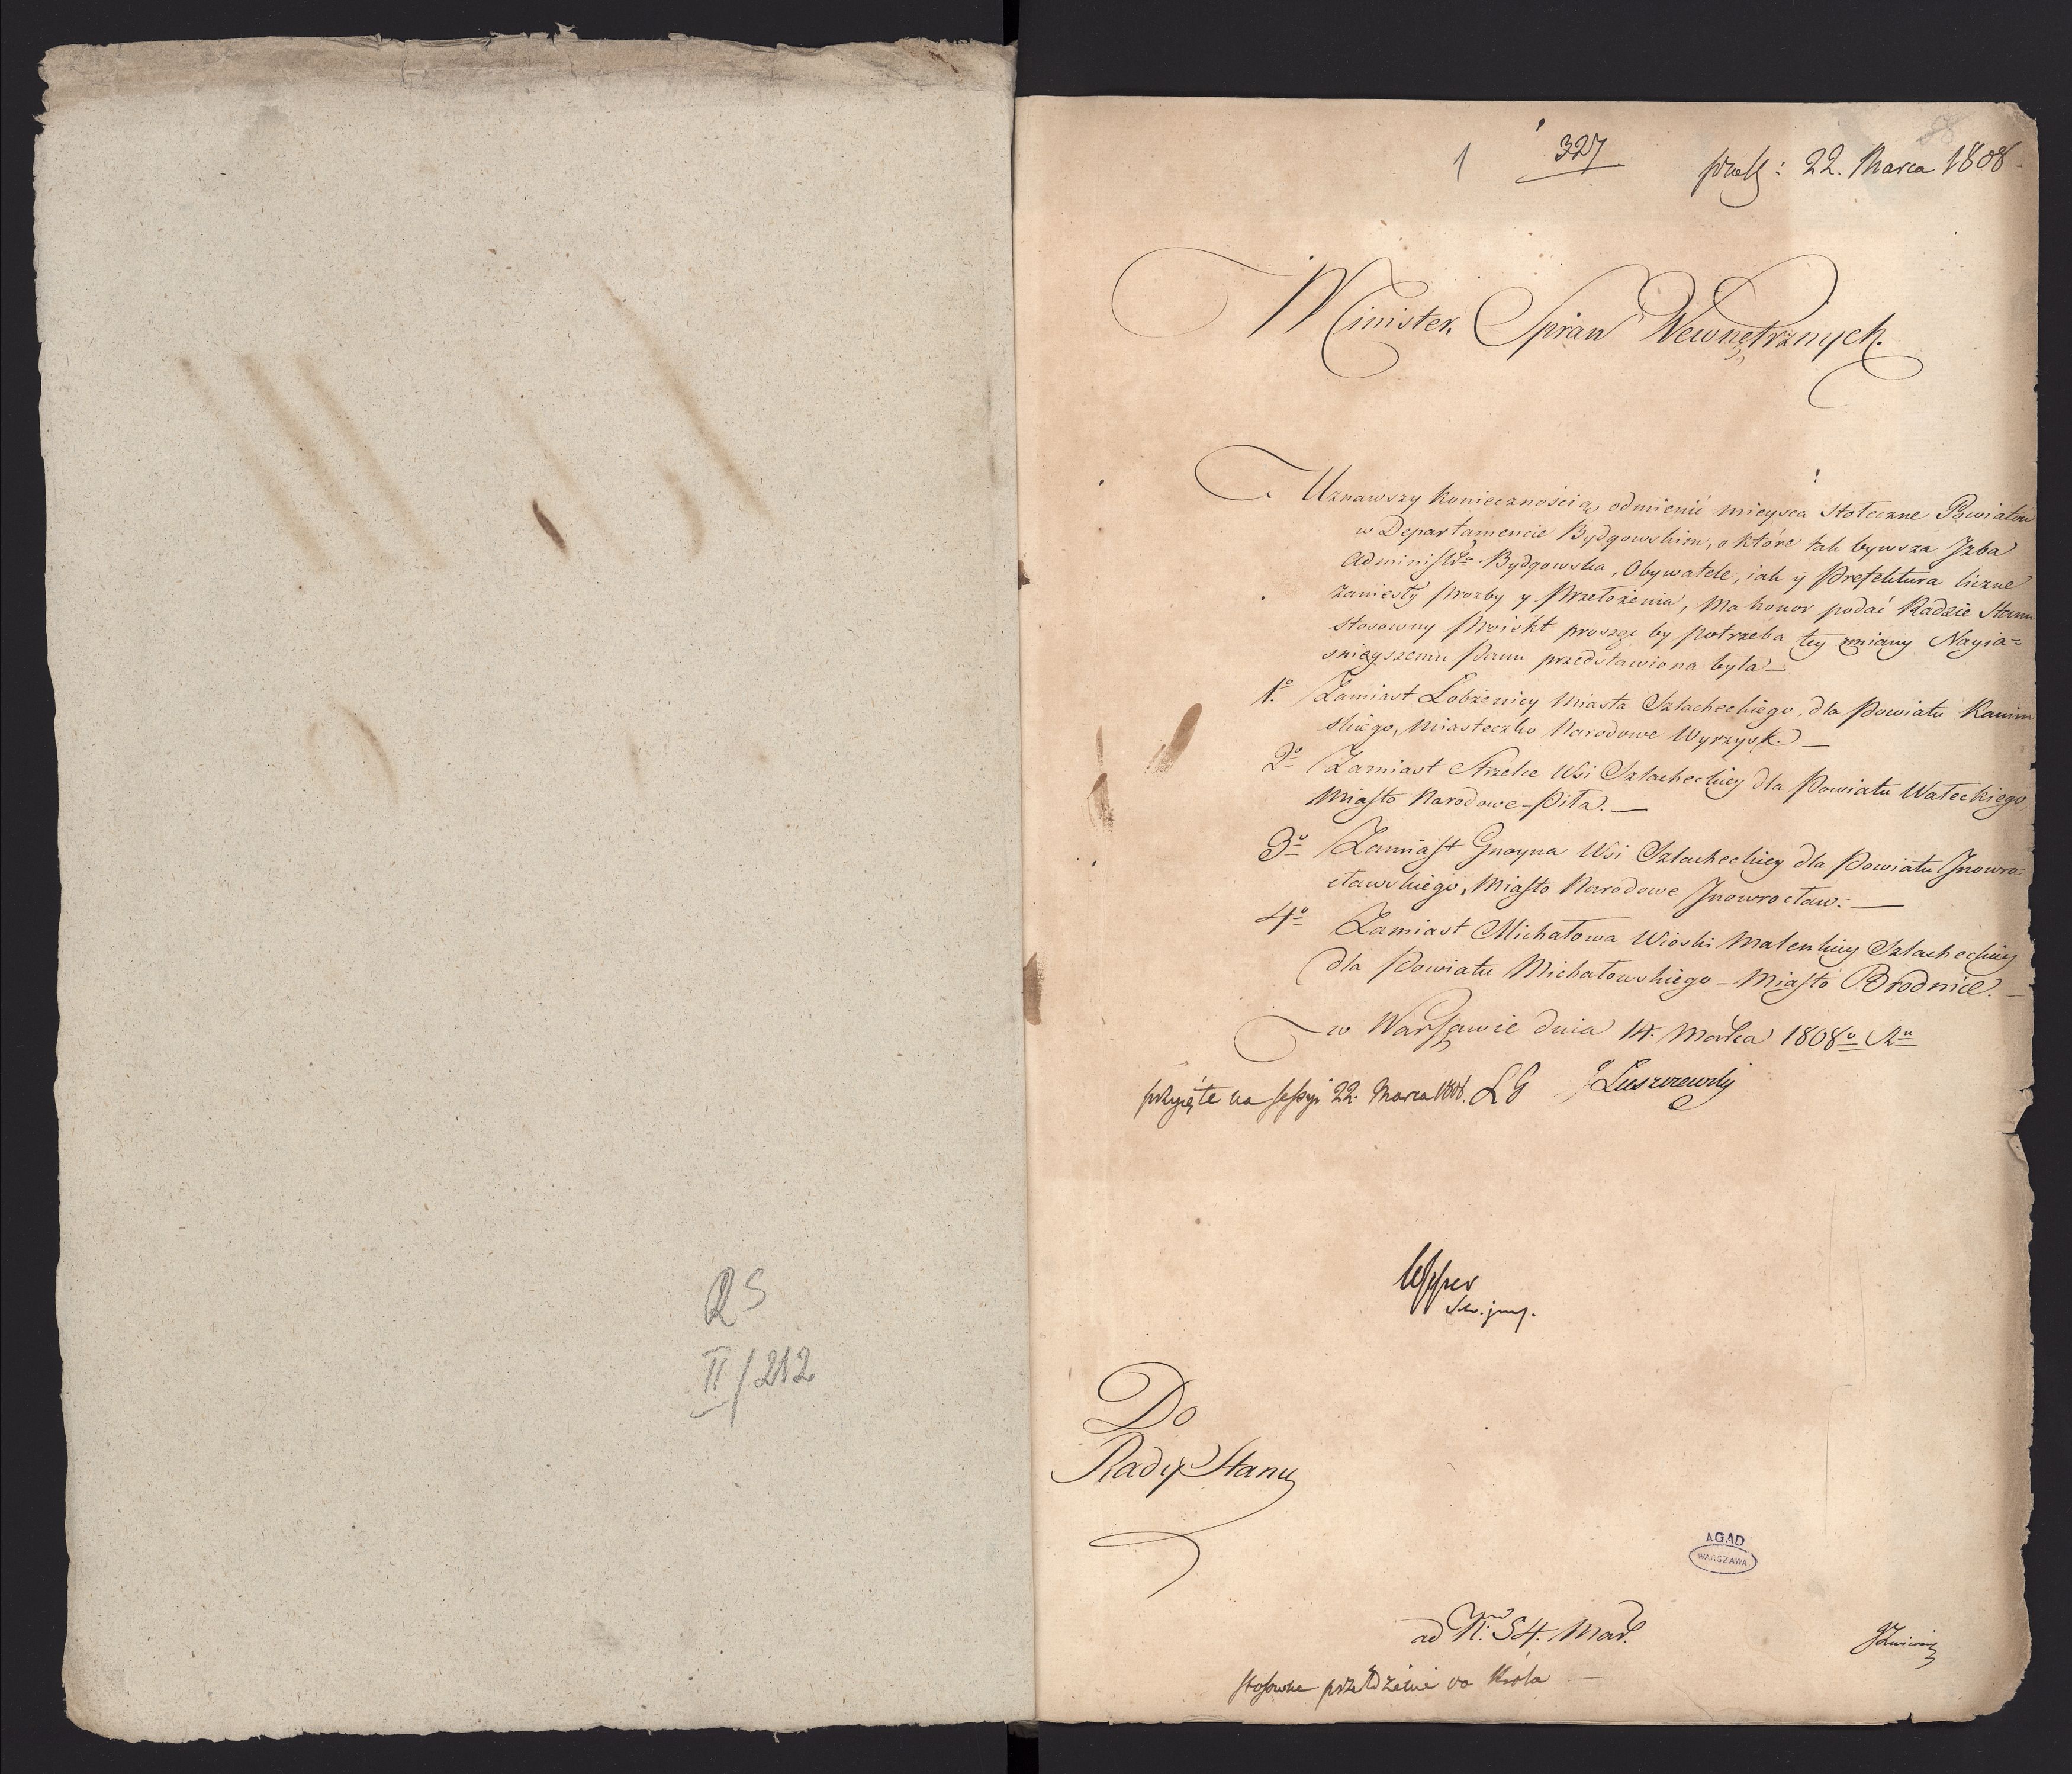 RS
II/212
1
327
22. Marca 1808
Minister Spraw Wewnętrznych.
Uznawszy koniecznością odmienić mieysca stołeczne Powiatow
w Departamencie Bydgowskim, o które tak bywsza Jzba
Administra: Bydgowska, Obywatele, iak y Prefektura liczne
zaniosły prozby y Przełożenia, ma honor podać Radzie Stanu
stosowny Proiekt prosząc by potrzeba tey zmiany Nayia=
snieyszemu Panu przedstawiona była —
1o. Zamiast Lobżenicy Miasta Szlacheckiego, dla Powiatu Kamin
skiego, Miasteczko Narodowe Wyrzysk. —
2o Zamiast Strzelce Wsi Szlacheckiey dla Powiatu Wałeckiego
Miasto Narodowe - Piła. —
3o Zamiast Gnoyna Wsi Szlacheckiey dla Powiatu Jnowro=
cławskiego, Miasto Narodowe Jnowrocław. —
4o Zamiast Michałowa Wioski Malenkiey Szlacheckiey
dla Powiatu Michałowskiego - Miasto Brodnice. —
w Warszawie dnia 14. Marca 1808o Ru
przyięte na sessyi 22. Marca 1808. LG J Łuszczewsky
Do
Rady Stanu
AGAD
WARSZAWA
ad N. 54. Mar.
stosowne do Króla —